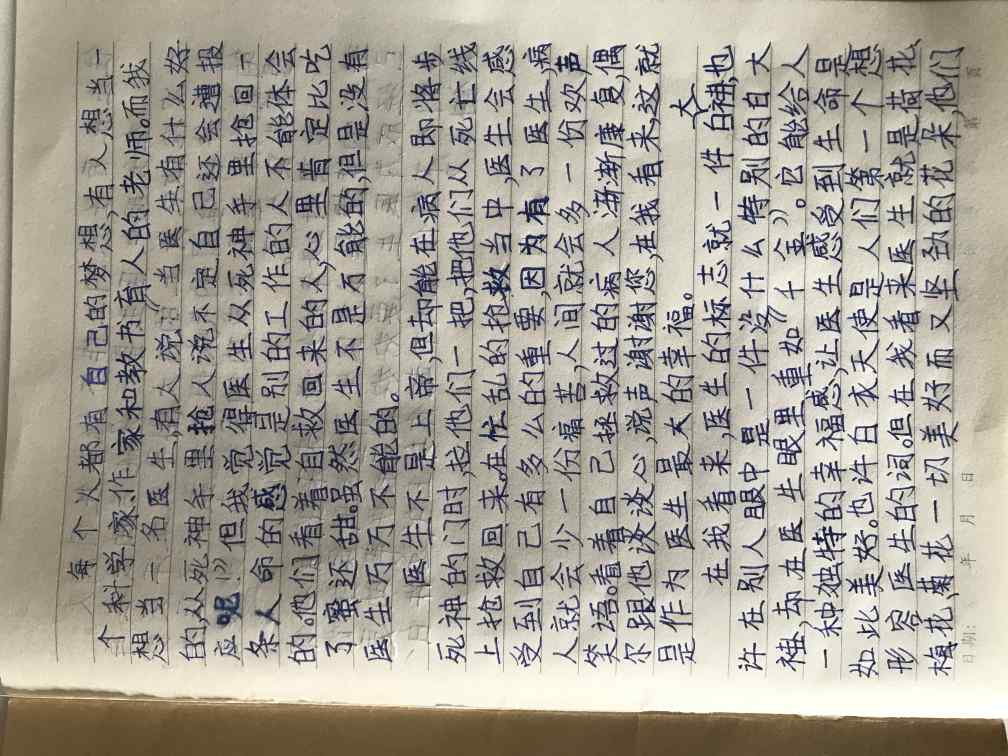 每个人都有自己的梦想,有人想当一
个科学家、作家和教书育人的老师。而我
想当一名医生,有人说:“当医生有什么好
的,从死神手里抢人说不定自己还会遭报
应呢!”但我觉得医生从死神手里抢回一
条人命的感觉是别的工作的人不能体会
的。他们看着自救回来的人,心里肯定比吃
了蜜还甜。虽然医生不是万能的,但是没有
医生万万不能的。
医生不是上帝,但却能在病人即将步
死神的门时,赶他们一把,把他们从死亡线
上抢救回来。在忙乱的抢救当中,医生会感
受到自己有多么的重要,因为有了医生,病
人就会少一份痛苦,人间就会多一份欢声
笑语。看着自己拯救过的病人渐渐康复,偶
尔跟他谈谈心,说声谢谢您,在我看来,这就
是作为医生最大的幸福。
在我看来,医生的标志就一件白大褂,也
许在别人眼中是一件没什么特别的白大
褂,却在医生眼里重如“千金”。它能给人
一种独特的幸福感,让医生感受到生命是
如此美好。也许白衣天使是人们第一个想
形容医生的词。但在我看来医生就是荷花、
梅花、菊花一切美好而又坚劲的花朵,他们
日期: 年 月 日
第 页